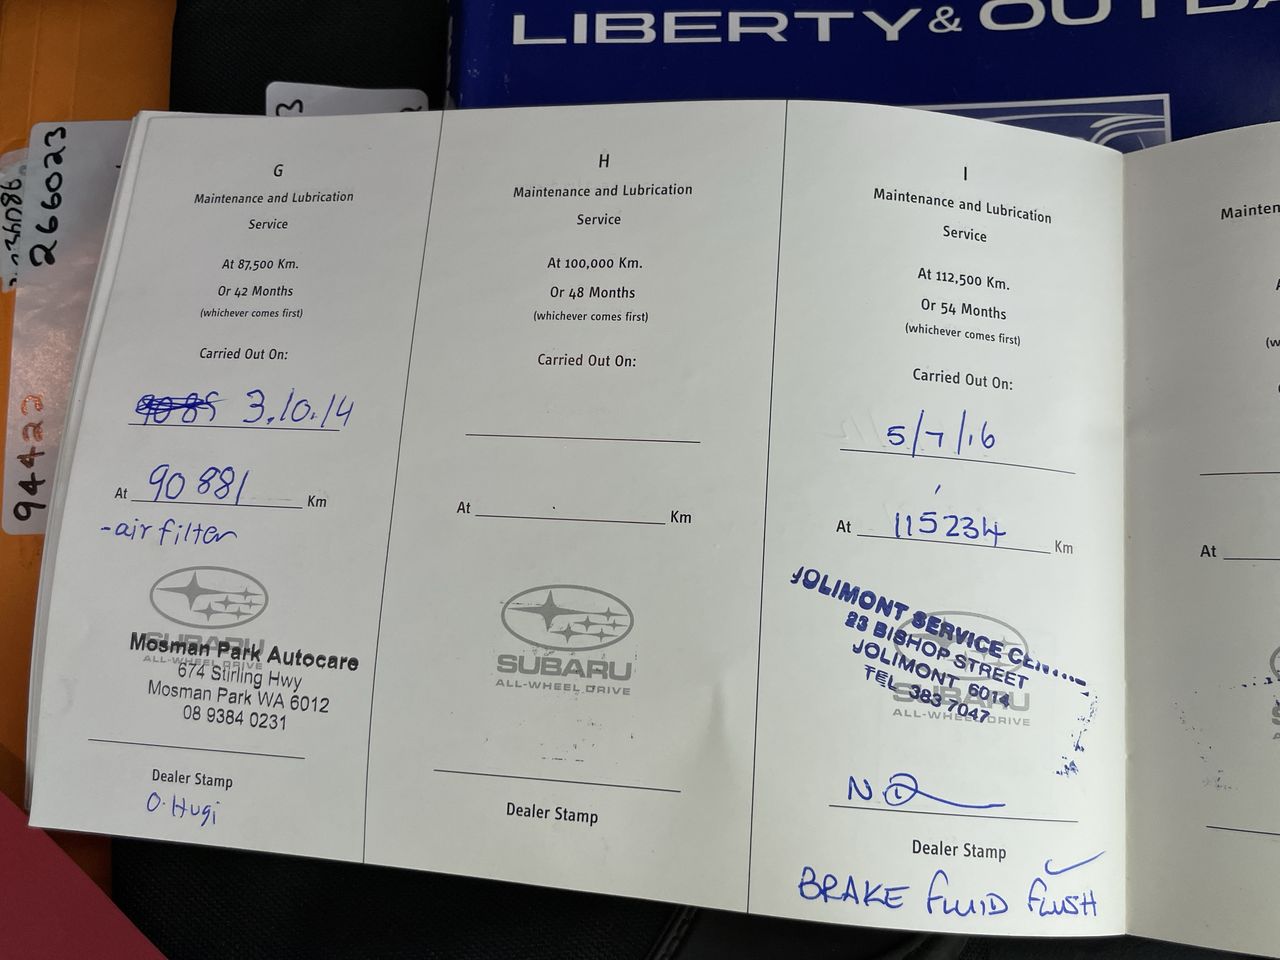 LIBERTY & OUTBA
2666023
94422
G
Maintenance and Lubrication
Service
At 87,500 Km.
Or 42 Months
(whichever comes first)
Carried Out On:
3.10.14
At 90 881 Km
-air filter
SUBARU
ALL-WHEEL DRIVE
Mosman Park Autocare
674 Stirling Hwy
Mosman Park WA 6012
08 9384 0231
Dealer Stamp
O. Hugi
H
Maintenance and Lubrication
Service
At 100,000 Km.
Or 48 Months
(whichever comes first)
Carried Out On:
At Km
SUBARU
ALL-WHEEL DRIVE
Dealer Stamp
I
Maintenance and Lubrication
Service
At 112,500 Km.
Or 54 Months
(whichever comes first)
Carried Out On:
5/7/16
At 115234 Km
JOLIMONT SERVICE
23 BISHOP STREET
JOLIMONT 6014
TEL 383 7047
SUBARU
ALL-WHEEL DRIVE
Dealer Stamp
BRAKE FLUID FLUSH
Mainten
At